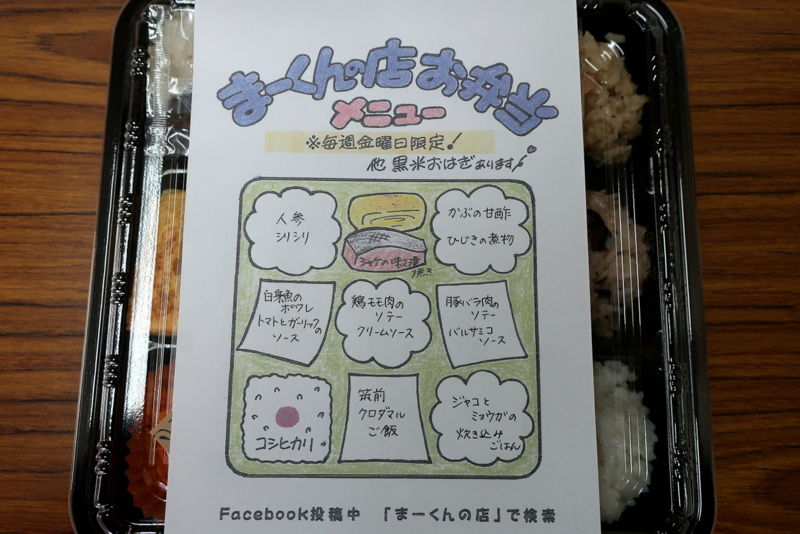 まーくんの店お弁当
メニュー
※毎週金曜日限定!
他 黒米おはぎあります
人参
シリシリ
シャケの味噌漬
焼き
かぶの甘酢
ひじきの煮物
白身魚の
ポワレ
トマトとガーリックの
ソース
鶏モモ肉の
ソテー
クリームソース
豚バラ肉の
ソテー
バルサミコ
ソース
コシヒカリ
筑前
クロダマル
ご飯
ジャコと
ミョウガの
炊き込み
ごはん
Facebook投稿中 「まーくんの店」で検索